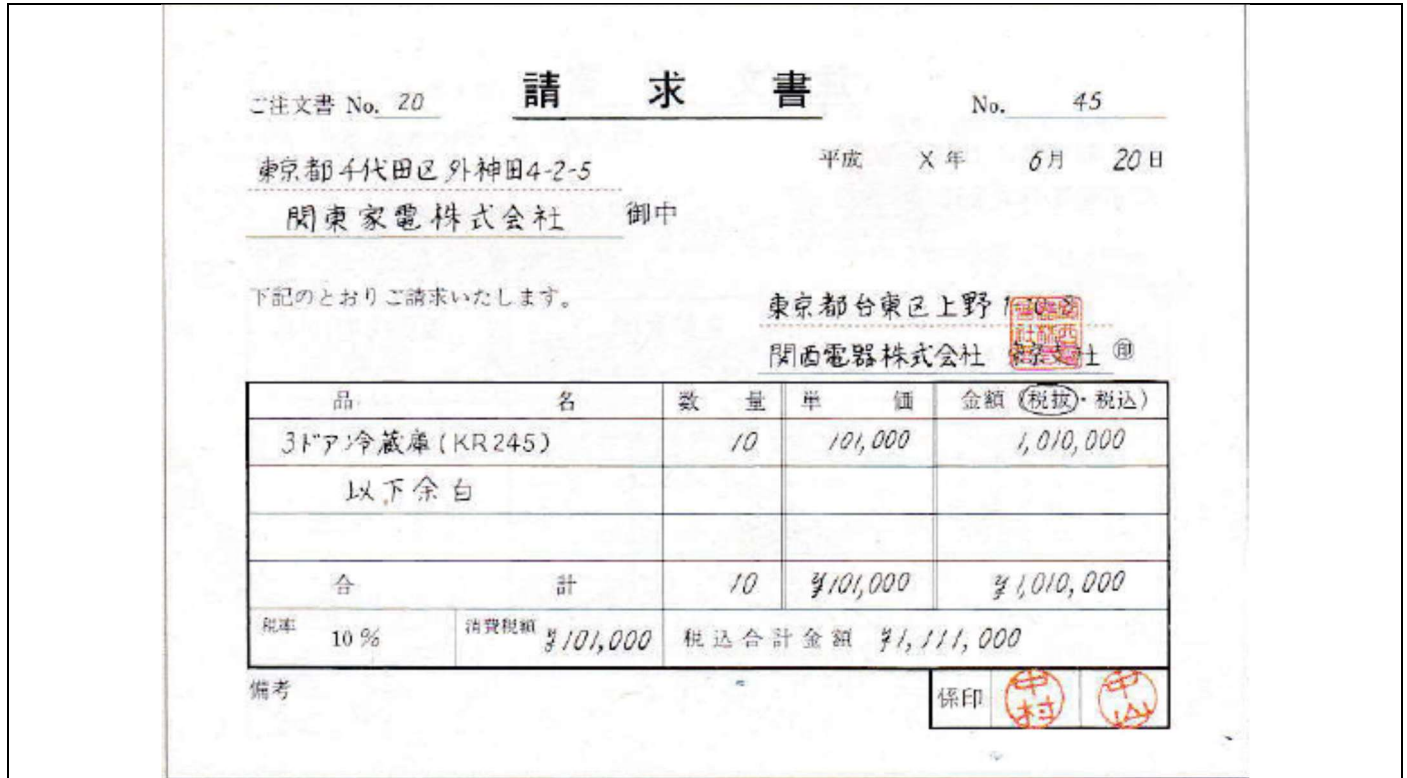 ご注文書 No. 20
請求書
No. 45
平成 X年 6月 20日
東京都千代田区外神田4-2-5
関東家電株式会社 御中
下記のとおりご請求いたします。
東京都台東区上野
関西電器株式会社 東京支社 ㊞
品名 数量 単価 金額(税抜・税込)
3ドア冷蔵庫(KR245) 10 101,000 1,010,000
以下余白
合計 10 ¥101,000 ¥1,010,000
税率 10% 消費税額 ¥101,000 税込合計金額 ¥1,111,000
備考
係印 中村 中山